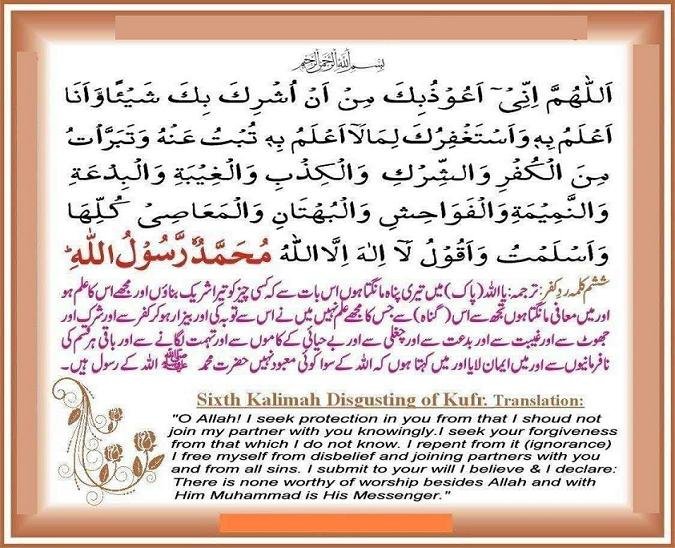 بِسْمِ اللهِ الرَّحْمٰنِ الرَّحِيْمِ
اَللّٰهُمَّ اِنِّیْٓ اَعُوْذُبِكَ مِنْ اَنْ اُشْرِكَ بِكَ شَيْئًاوَّاَنَا
اَعْلَمُ بِهٖ وَاَسْتَغْفِرُكَ لِمَالَآاَعْلَمُ بِهٖ تُبْتُ عَنْهُ وَتَبَرَّأْتُ
مِنَ الْكُفْرِ وَالشِّرْكِ وَالْكِذْبِ وَالْغِيْبَةِ وَالْبِدْعَةِ
وَالنَّمِيْمَةِ وَالْفَوَاحِشِ وَالْبُهْتَانِ وَالْمَعَاصِیْ كُلِّهَا
وَاَسْلَمْتُ وَاَقُوْلُ لَآ اِلٰهَ اِلَّااللهُ مُحَمَّدٌ رَّسُوْلُ اللهِ ؕ
ششم کلمہ ردِ کفر: ترجمہ: یااللہ (پاک) میں تیری پناہ مانگتا ہوں اس بات سے کہ کسی چیز کو تیرا شریک بناؤں اور مجھے اس کا علم ہو
اور میں معافی مانگتا ہوں تجھ سے اس (گناہ) سے جس کا مجھے علم نہیں میں نے اس سے توبہ کی اور بیزار ہو کر کفر سے اور شرک اور
جھوٹ سے اور غیبت سے اور بدعت سے اور چغلی سے اور بے حیائی کے کاموں سے اور تہمت لگانے سے اور باقی ہر قسم کی
نافرمانیوں سے اور میں ایمان لایا اور میں کہتا ہوں کہ اللہ کے سوا کوئی معبود نہیں حضرت محمد ﷺ اللہ کے رسول ہیں۔
Sixth Kalimah Disgusting of Kufr. Translation:
"O Allah! I seek protection in you from that I shoud not
join my partner with you knowingly.I seek your forgiveness
from that which I do not know. I repent from it (ignorance)
I free myself from disbelief and joining partners with you
and from all sins. I submit to your will I believe & I declare:
There is none worthy of worship besides Allah and with
Him Muhammad is His Messenger."